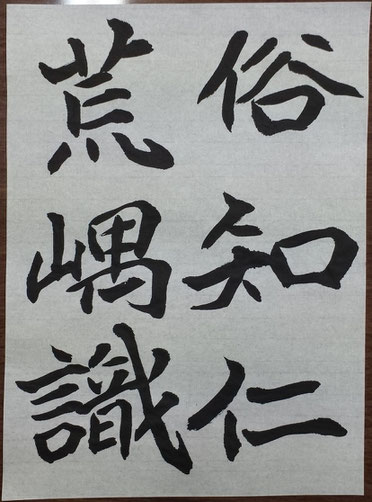 俗知仁
荒嵎識